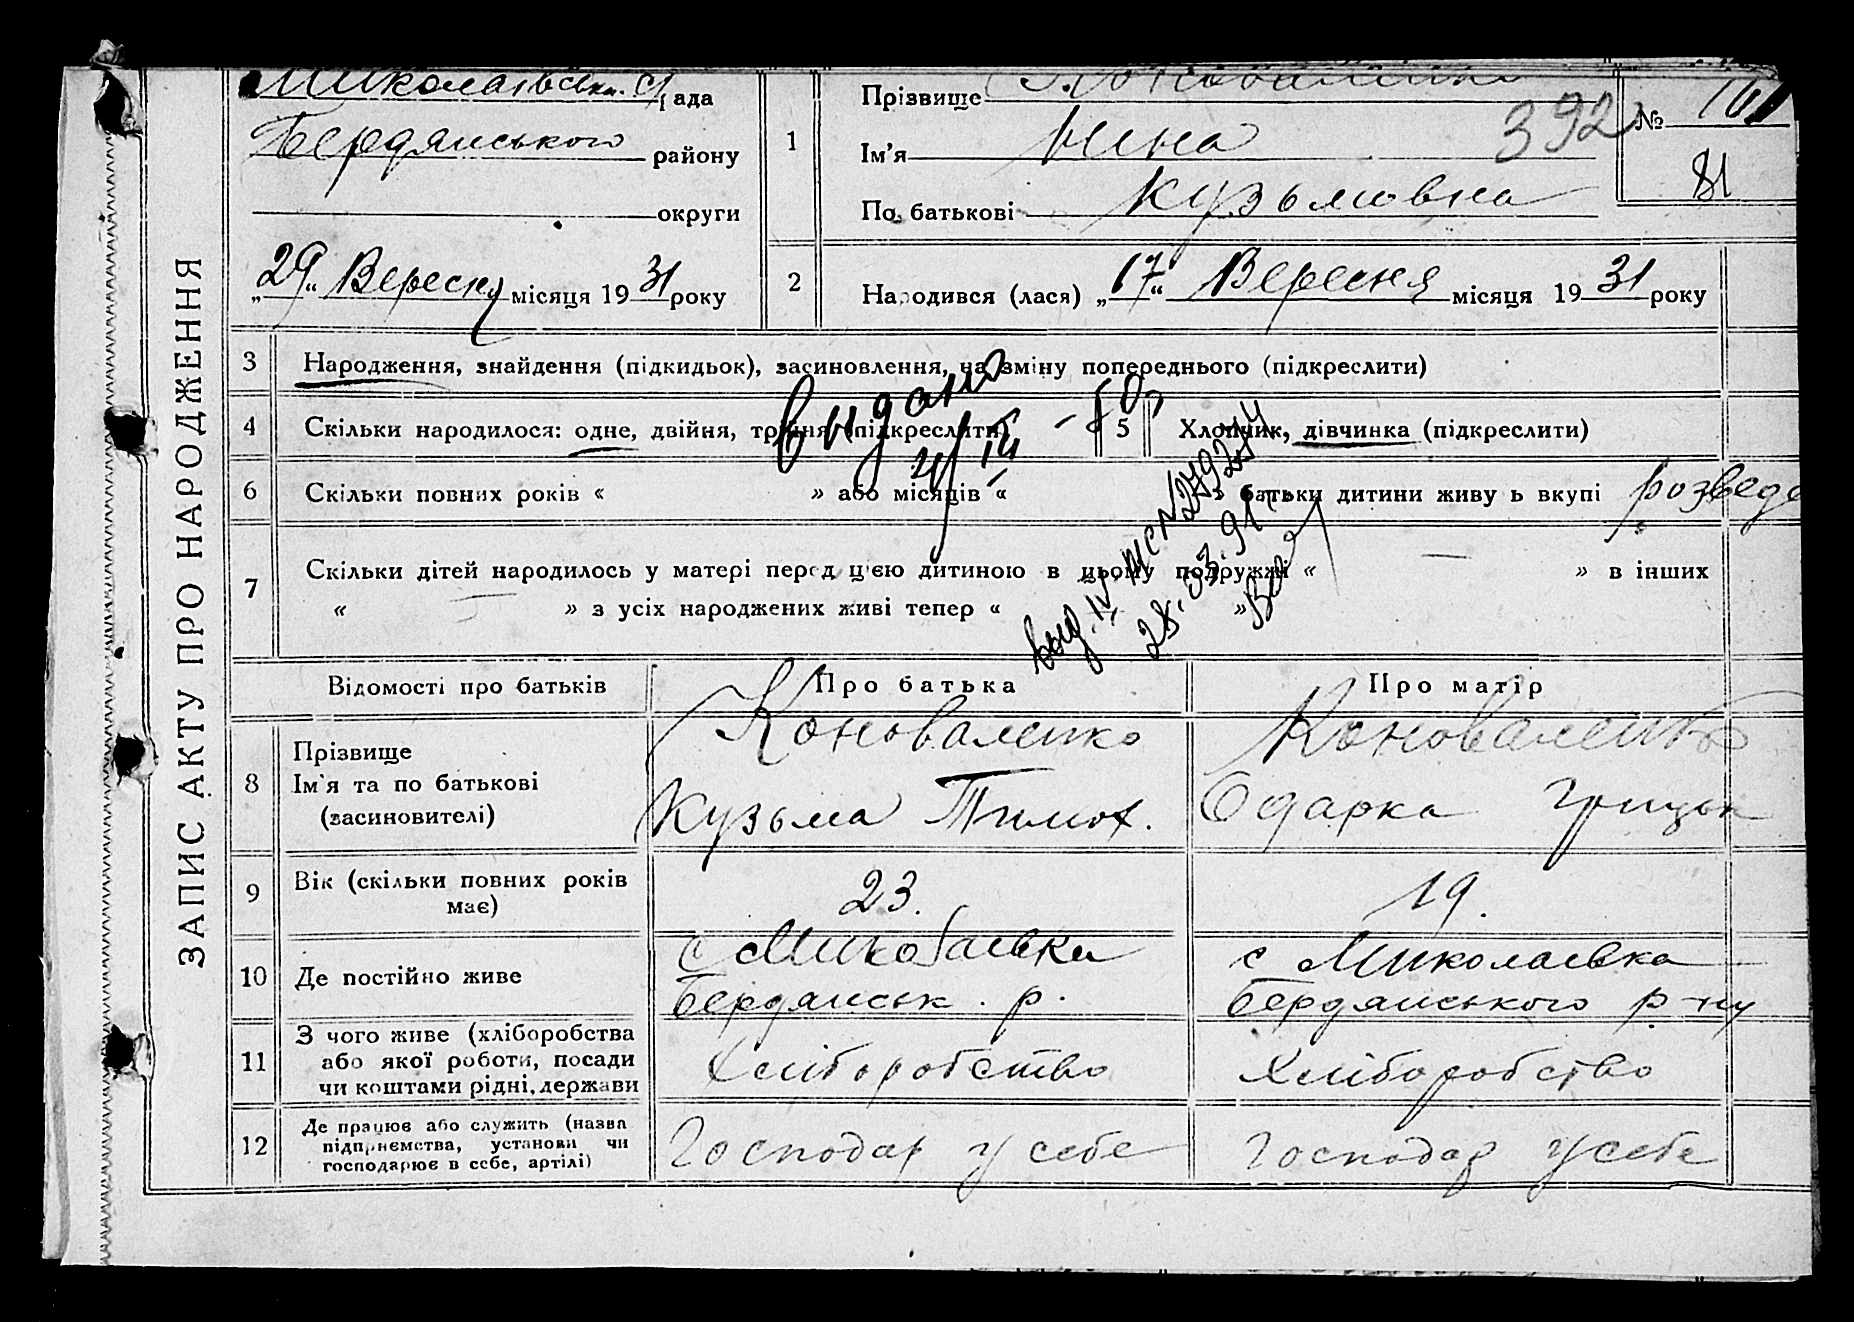 ЗАПИС АКТУ ПРО НАРОДЖЕННЯ
Миколаївська с/рада
Бердянського району
округи
„29“ Вересня місяця 1931 року
1
Прізвище Коноваленко
Ім'я Нина
По батькові Кузьмовна
392
№ 161
81
2
Народився (лася) „17“ Вересня місяця 1931 року
3 Народження, знайдення (підкидьок), засиновлення, на зміну попереднього (підкреслити)
4 Скільки народилося: одне, двійня, трійня (підкреслити)
5 Хлопчик, дівчинка (підкреслити)
6 Скільки повних років « » або місяців « батьки дитини живуть вкупі розведе
7 Скільки дітей народилось у матері перед ц'єю дитиною в цьому подружжі « — » в інших
« — » з усіх народжених живі тепер « — »
видано
28.03.91
Відомості про батьків
Про батька
Про матір
8 Прізвище
Ім'я та по батькові
(засиновителі)
Коноваленко
Кузьма Тимоф.
Коноваленко
Одарка Грицьк
9 Вік (скільки повних років має)
23.
19.
10 Де постійно живе
с Миколаевка
Бердянськ. р.
с Миколаевка
Бердянського р-ну
11 З чого живе (хліборобства
або якої роботи, посади
чи коштами рідні, держави
Хліборобство
Хліборобство
12 Де працює або служить (назва
підприємства, установи чи
господарює в себе, артілі)
Господар у себе
Господар у себе